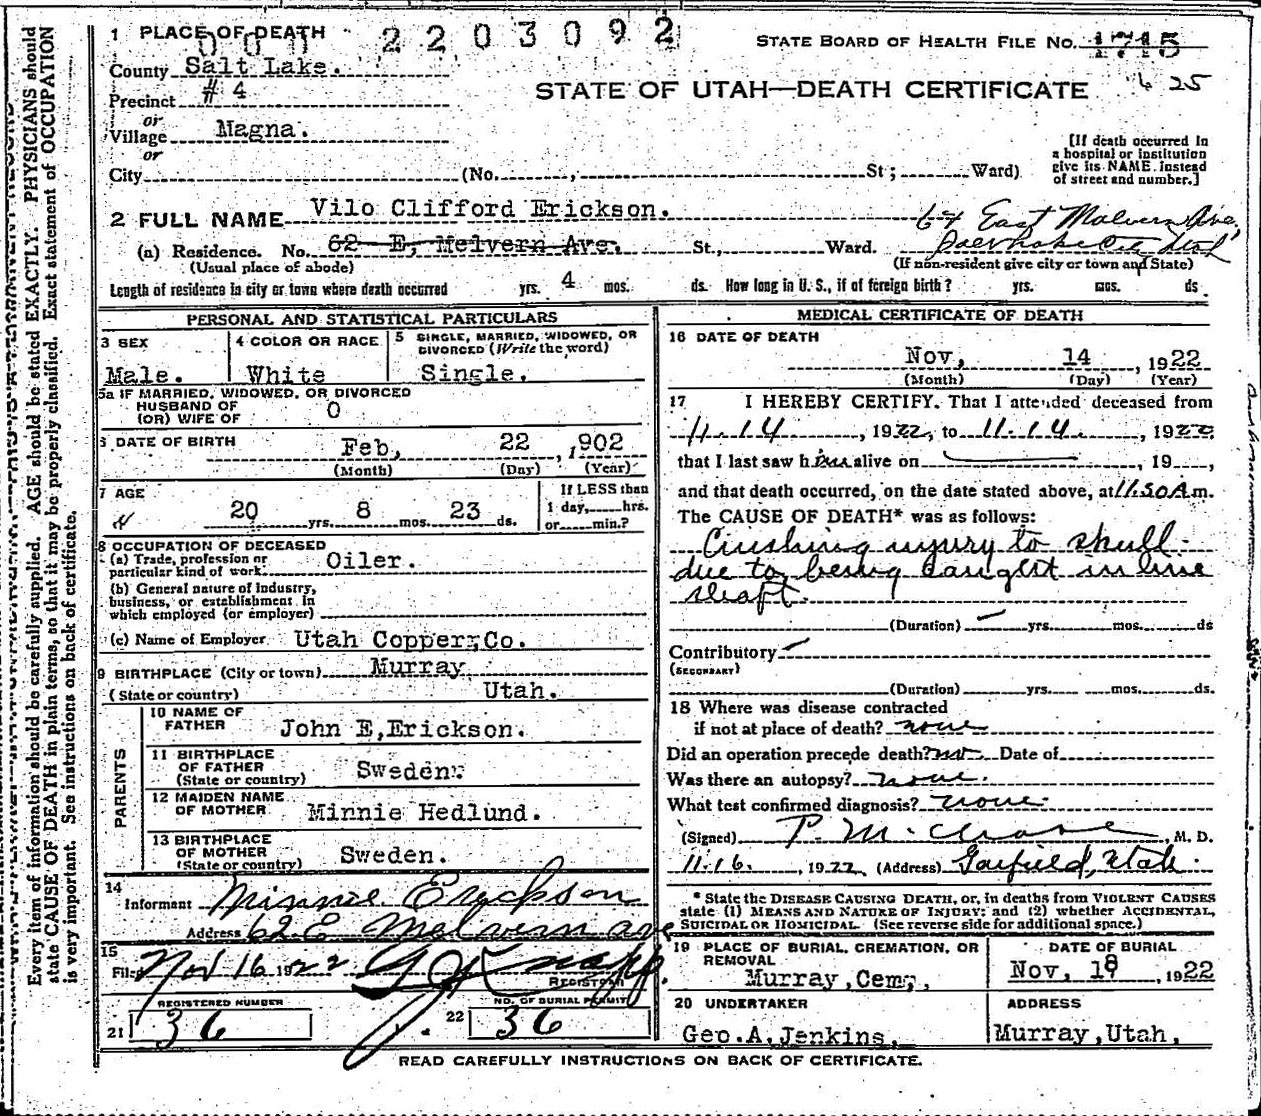 1 PLACE OF DEATH
000 2203092
STATE BOARD OF HEALTH FILE NO. 1715
County Salt Lake.
Precinct # 4
or
Village Magna.
or
City (No. , St ; Ward)
STATE OF UTAH—DEATH CERTIFICATE
625
[If death occurred in
a hospital or institution
give its NAME instead
of street and number.]
2 FULL NAME Vilo Clifford Erickson.
(a) Residence. No. 62 E, Melvern Ave. St., Ward.
64 East Malvern Ave,
Salt Lake City Utah
(Usual place of abode)
(If non-resident give city or town and State)
Length of residence in city or town where death occurred yrs. 4 mos. ds. How long in U. S., if of foreign birth? yrs. mos. ds
PERSONAL AND STATISTICAL PARTICULARS
3 SEX
Male.
4 COLOR OR RACE
White
5 SINGLE, MARRIED, WIDOWED, OR
DIVORCED (Write the word)
Single.
5a IF MARRIED, WIDOWED, OR DIVORCED
HUSBAND OF
(OR) WIFE OF O
6 DATE OF BIRTH Feb, 22 ,1902
(Month) (Day) (Year)
7 AGE
20 yrs. 8 mos. 23 ds.
If LESS than
1 day, hrs.
or min.?
8 OCCUPATION OF DECEASED
(a) Trade, profession or
particular kind of work Oiler.
(b) General nature of Industry,
business, or establishment in
which employed (or employer)
(c) Name of Employer Utah Copper,Co.
9 BIRTHPLACE (City or town) Murray
(State or country) Utah.
PARENTS
10 NAME OF
FATHER John E,Erickson.
11 BIRTHPLACE
OF FATHER
(State or country) Sweden.
12 MAIDEN NAME
OF MOTHER Minnie Hedlund.
13 BIRTHPLACE
OF MOTHER
(State or country) Sweden.
14
Informant Minnie Erickson
Address 62 E Malvern ave
15
Filed Nov 16 1922
REGISTRAR
REGISTERED NUMBER
21 36
NO. OF BURIAL PERMIT
22 36
MEDICAL CERTIFICATE OF DEATH
16 DATE OF DEATH
Nov, 14 , 1922
(Month) (Day) (Year)
17 I HEREBY CERTIFY, That I attended deceased from
11.14 , 1922, to 11.14. , 1922
that I last saw him alive on , 19 ,
and that death occurred, on the date stated above, at 11.50 A m.
The CAUSE OF DEATH* was as follows:
Crushing injury to skull
due to being caught in line
shaft.
(Duration) yrs. mos. ds
Contributory
(SECONDARY)
(Duration) yrs. mos. ds.
18 Where was disease contracted
if not at place of death? none
Did an operation precede death? no Date of
Was there an autopsy? none.
What test confirmed diagnosis? none
(Signed) , M. D.
11.16. , 1922 (Address) Garfield, Utah.
* State the DISEASE CAUSING DEATH, or, in deaths from VIOLENT CAUSES
state (1) MEANS AND NATURE OF INJURY; and (2) whether ACCIDENTAL,
SUICIDAL OR HOMICIDAL. (See reverse side for additional space.)
19 PLACE OF BURIAL, CREMATION, OR
REMOVAL
Murray,Cem,,
DATE OF BURIAL
Nov, 18 , 1922
20 UNDERTAKER
Geo.A,Jenkins,
ADDRESS
Murray,Utah,
READ CAREFULLY INSTRUCTIONS ON BACK OF CERTIFICATE.
Every item of information should be carefully supplied. AGE should be stated EXACTLY. PHYSICIANS should
state CAUSE OF DEATH in plain terms, so that it may be properly classified. Exact statement of OCCUPATION
is very important. See instructions on back of certificate.